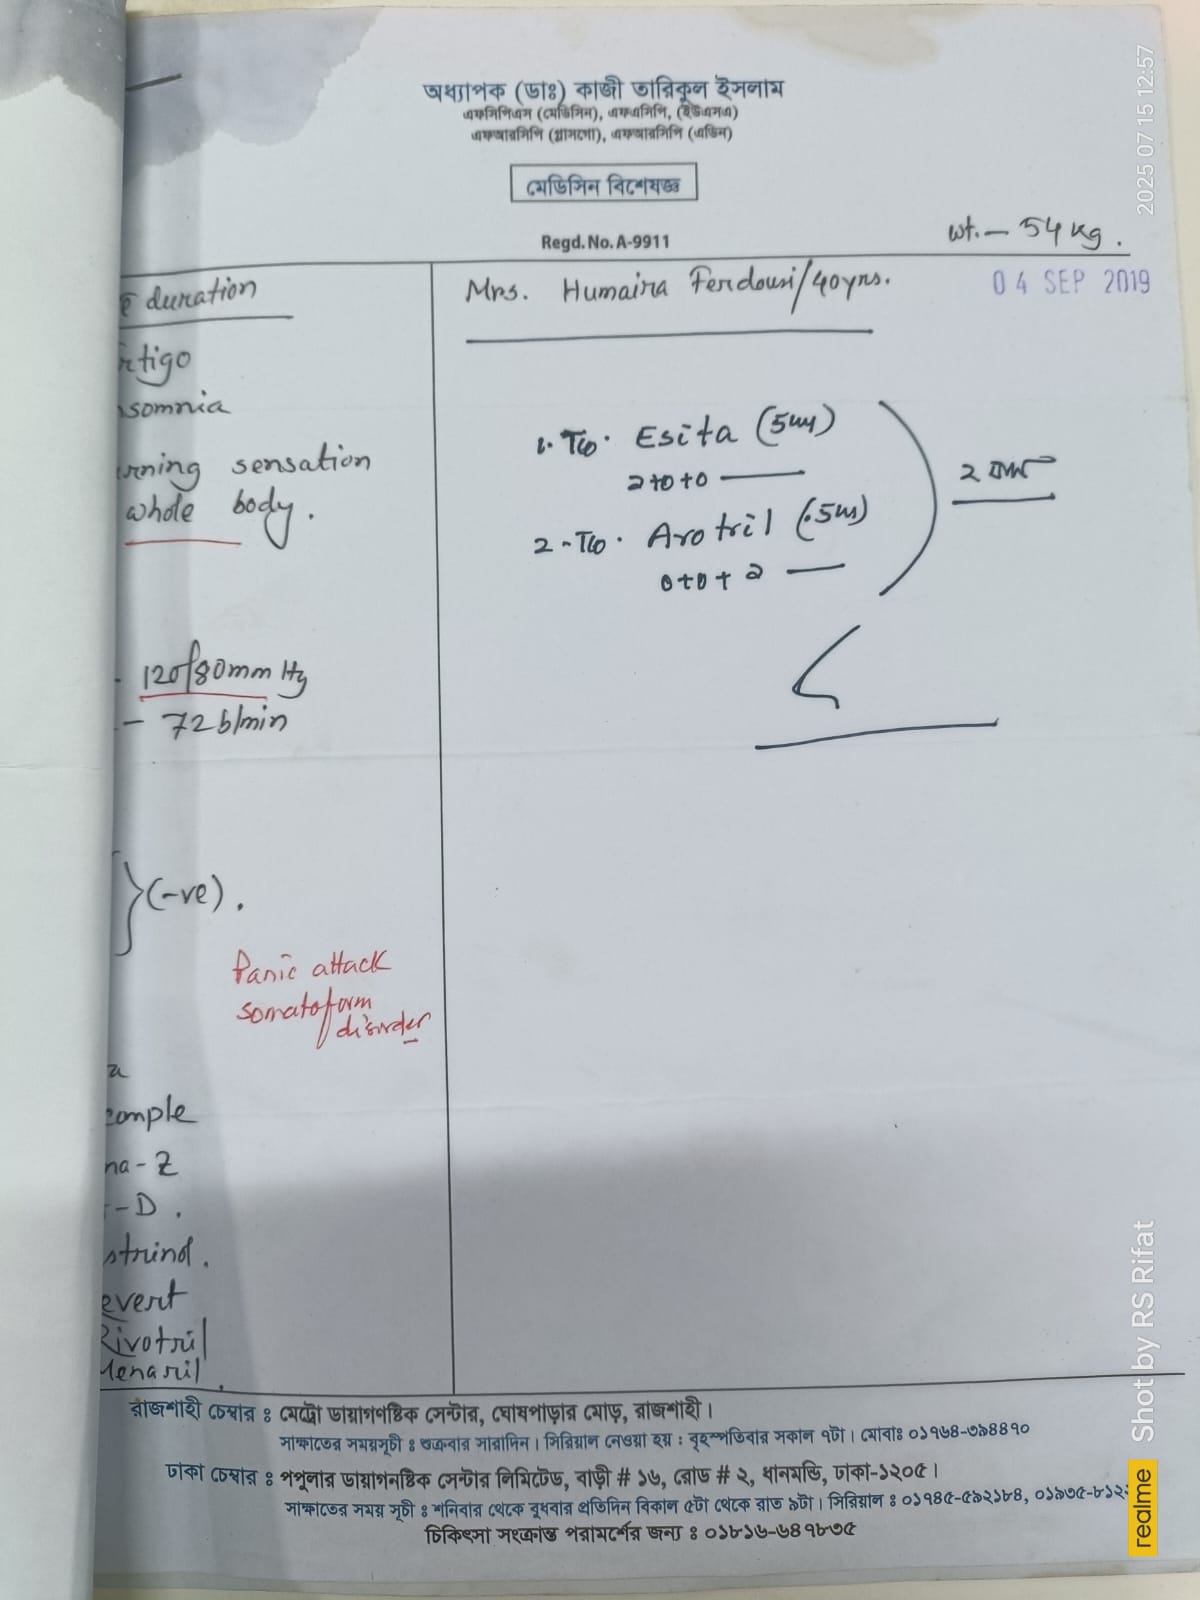 অধ্যাপক (ডাঃ) কাজী তারিকুল ইসলাম
এফসিপিএস (মেডিসিন), এফএসিপি, (ইউএসএ)
এফআরসিপি (গ্লাসগো), এফআরসিপি (এডিন)
মেডিসিন বিশেষজ্ঞ
Regd. No. A-9911
wt. - 54 kg.
Mrs. Humaira Ferdousi/40yrs.
04 SEP 2019
duration
rtigo
somnia
rning sensation
whole body.
- 120/80mm Hg
- 72 b/min
(-ve).
Panic attack
somatoform
disorder
comple
na-Z
-D.
strind.
evert
Rivotril
Menaril.
1. Tab. Esita (5mg)
2. Tab. Arotril (.5mg)
রাজশাহী চেম্বার : মেট্রো ডায়াগনষ্টিক সেন্টার, ঘোষপাড়ার মোড়, রাজশাহী।
সাক্ষাতের সময়সূচী : শুক্রবার সারাদিন। সিরিয়াল নেওয়া হয় : বৃহস্পতিবার সকাল ৭টা। মোবাঃ ০১৭৬৪-৩৯৪৪৭০
ঢাকা চেম্বার : পপুলার ডায়াগনষ্টিক সেন্টার লিমিটেড, বাড়ী # ১৬, রোড # ২, ধানমন্ডি, ঢাকা-১২০৫।
সাক্ষাতের সময় সূচী : শনিবার থেকে বুধবার প্রতিদিন বিকাল ৫টা থেকে রাত ৯টা। সিরিয়াল : ০১৭৪৫-৫৯২১৮৪, ০১৯৩৫-৮১২
চিকিৎসা সংক্রান্ত পরামর্শের জন্য : ০১৮১৬-৬৪৭৮৩৫
2025 07 15 12:57
Shot by RS Rifat
realme